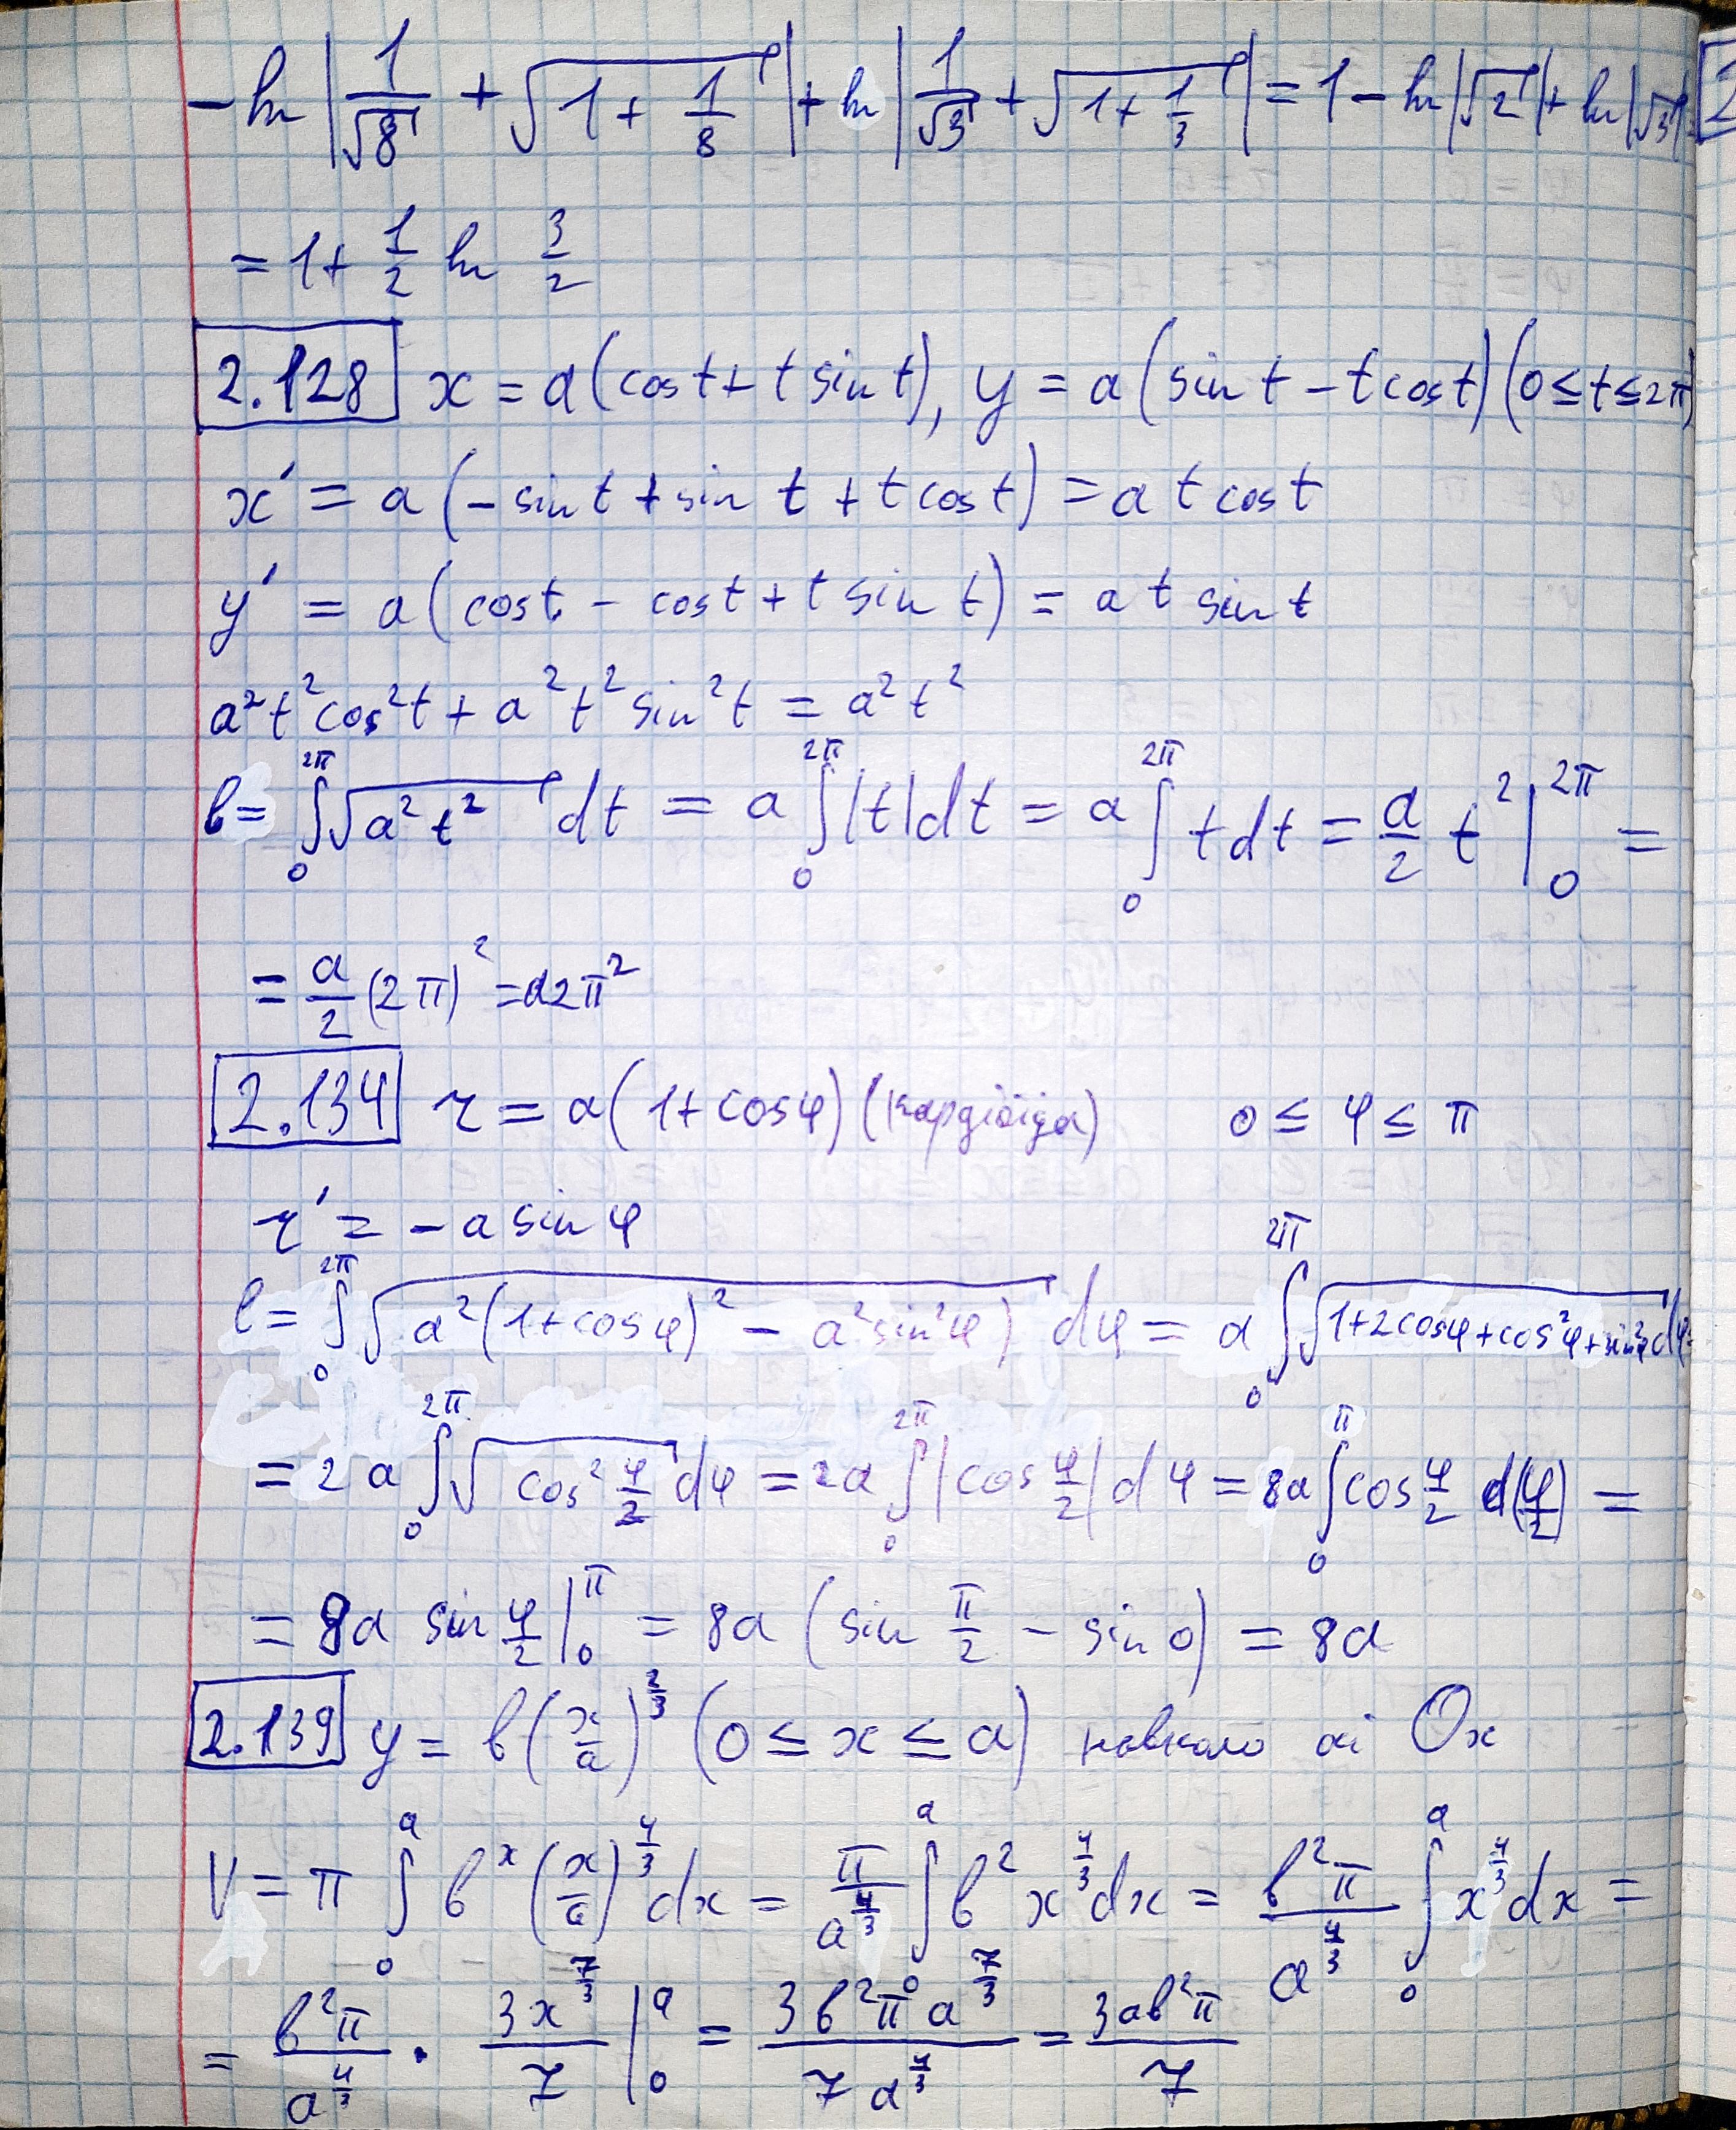 -ln|1/√8 + √(1 + 1/8)| + ln|1/√3 + √(1 + 1/3)| = 1 - ln|√2| + ln|√3|
= 1 + 1/2 ln 3/2
2.128 x = a(cos t + t sin t), y = a(sin t - t cos t) (0 ≤ t ≤ 2π)
x' = a(-sin t + sin t + t cos t) = a t cos t
y' = a(cos t - cos t + t sin t) = a t sin t
a² t² cos² t + a² t² sin² t = a² t²
l = ∫₀^2π √(a² t²) dt = a ∫₀^2π |t| dt = a ∫₀^2π t dt = a/2 t² |₀^2π =
= a/2 (2π)² = a2π²
2.134 r = a(1 + cos φ) (кардіоїда) 0 ≤ φ ≤ π
r' = -a sin φ
l = ∫₀^2π √(a²(1 + cos φ)² - a² sin² φ) dφ = a ∫₀^2π √(1 + 2cos φ + cos² φ + sin² φ) dφ =
= 2a ∫₀^2π √(cos² φ/2) dφ = 2a ∫₀^2π |cos φ/2| dφ = 8a ∫₀^π cos φ/2 d(φ/2) =
= 8a sin φ/2 |₀^π = 8a (sin π/2 - sin 0) = 8a
2.139 y = b(x/a)^(2/3) (0 ≤ x ≤ a) навколо осі Ox
V = π ∫₀^a b^x (x/a)^(4/3) dx = π/a^(4/3) ∫₀^a b² x^(4/3) dx = b²π/a^(4/3) ∫₀^a x^(4/3) dx =
= b²π/a^(4/3) · 3x^(7/3)/7 |₀^a = 3b²π a^(7/3)/7a^(4/3) = 3ab²π/7